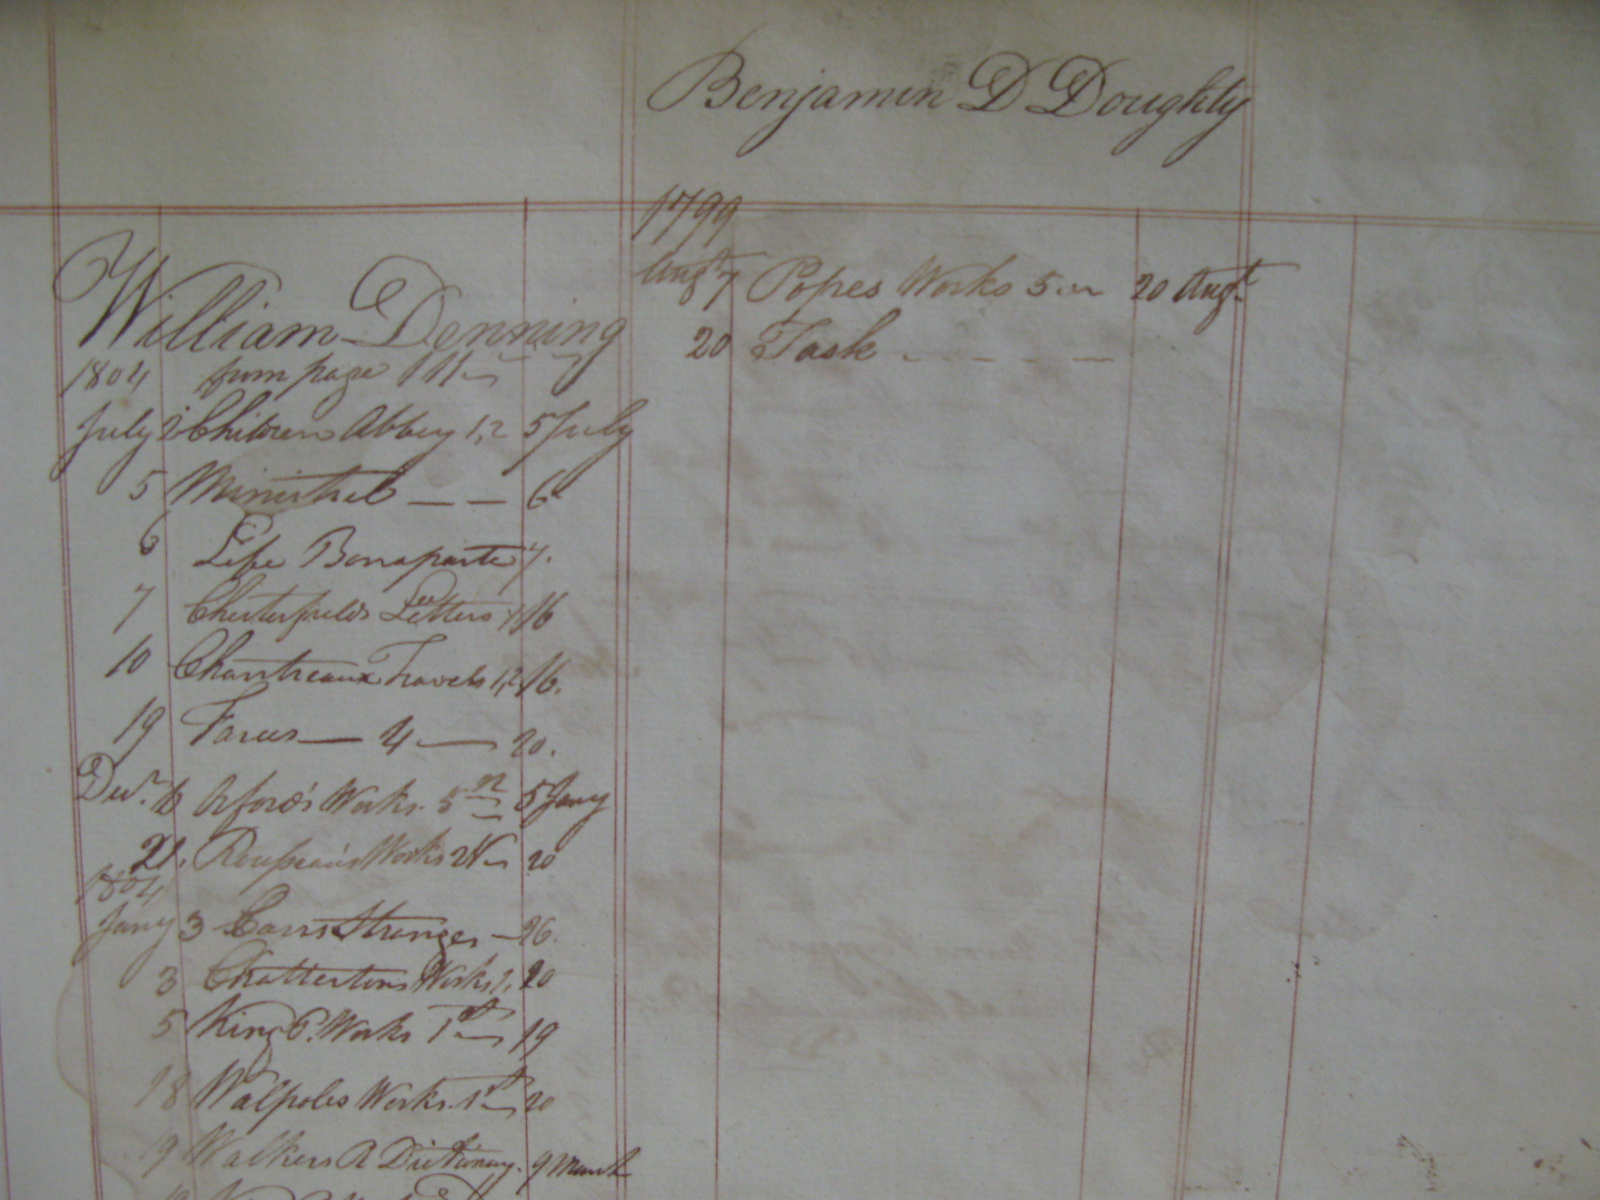 Benjamin D Doughty
1799
Augt 7 Popes Works 5 20 Augt
20 Task
William Denning
1804 from page
July 2 Children Abbey 1,2 5 July
5 Minstrel 6
6 Life Bonaparte 7.
7 Chesterfields Letters 16
10 Chantreaux Travels 1,2 16.
19 4 20.
Decr. Orford's Works. 5 5 Jany
21, Rousseau's Works 20
1804
Jany 3 Carrs Stranger 26.
3 Chattertons Works 1, 20
5 King P. Works 1st 19
18 Walpoles Works. 1st 20
19 Walkers Dictionary. 9 March